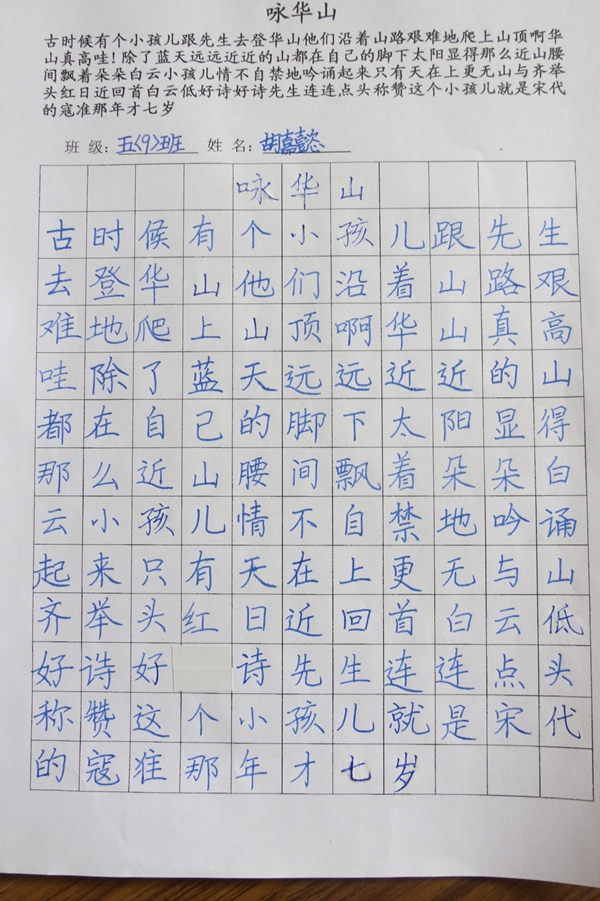 咏华山
古时候有个小孩儿跟先生去登华山他们沿着山路艰难地爬上山顶啊华
山真高哇!除了蓝天远远近近的山都在自己的脚下太阳显得那么近山腰
间飘着朵朵白云小孩儿情不自禁地吟诵起来只有天在上更无山与齐举
头红日近回首白云低好诗好诗先生连连点头称赞这个小孩儿就是宋代
的寇准那年才七岁
班 级: 五(9)班 姓 名: 胡嘉懿
咏华山
古时候有个小孩儿跟先生
去登华山他们沿着山路艰
难地爬上山顶啊华山真高
哇除了蓝天远远近近的山
都在自己的脚下太阳显得
那么近山腰间飘着朵朵白
云小孩儿情不自禁地吟诵
起来只有天在上更无与山
齐举头红日近回首白云低
好诗好诗先生连连点头
称赞这个小孩儿就是宋代
的寇准那年才七岁